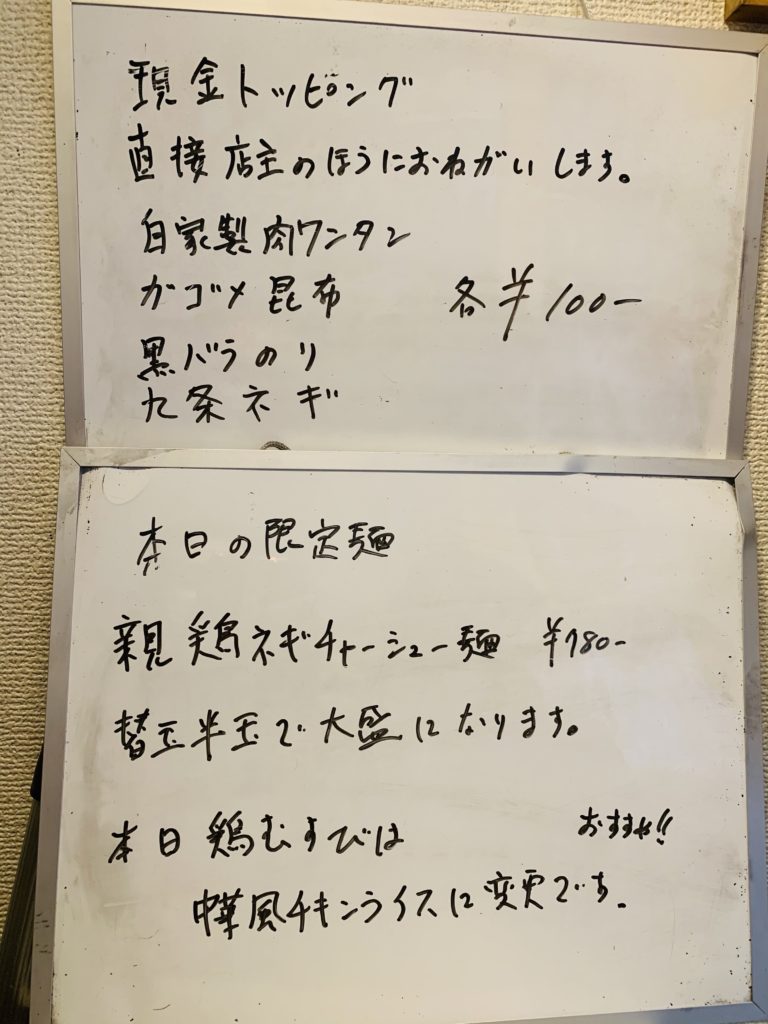 現金トッピング
直接店主のほうにおねがいします。
自家製肉ワンタン
ガゴメ昆布
各¥100-
黒バラのり
九条ネギ
本日の限定麺
親鶏ネギチャーシュー麺 ¥780-
替玉半玉で大盛になります。
おすすめ!!
本日鶏むすびは
中華風チキンライスに変更です。